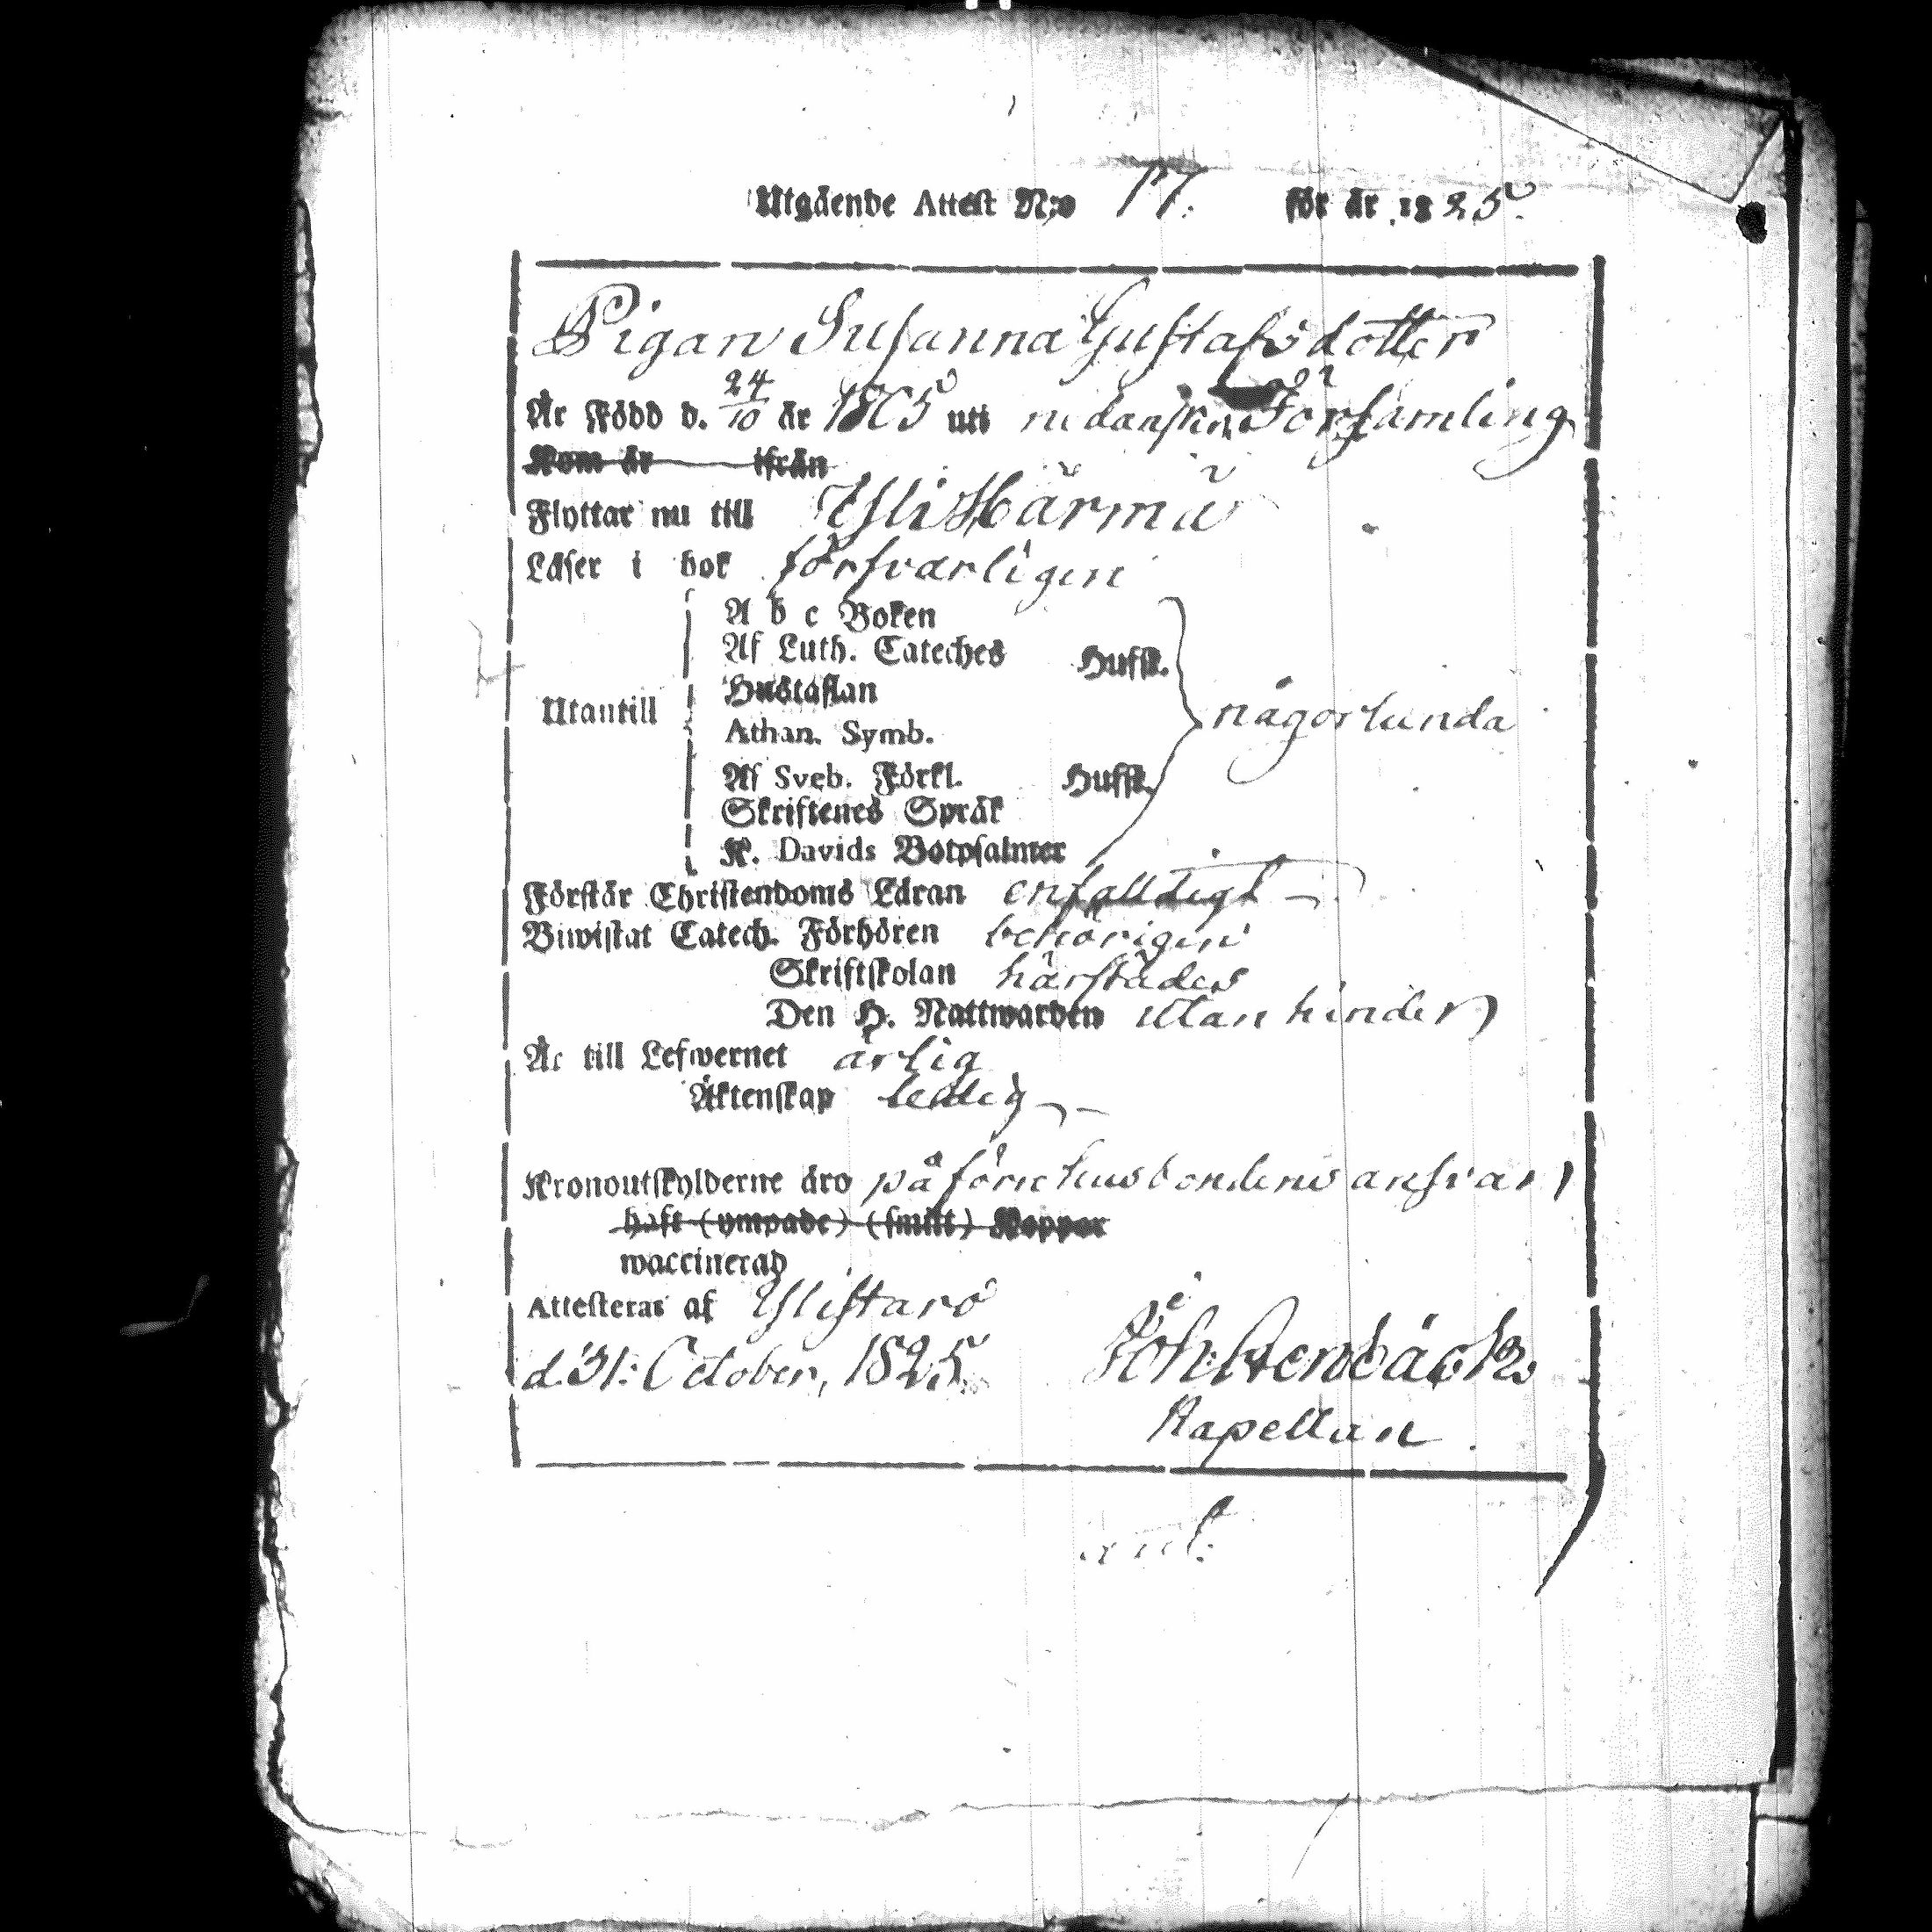 Utgående Attest N:o 17. för år 1825.
Pigan Susanna Gustafsdotter
Är Född d. 24/10 år 1805 uti nedanskrn. Församling
Kom år ifrån
Flyttar nu till Ylihärmä
Läser i bok försvarligen
A b c Boken
Af Luth. Cateches Hufst.
Hustaflan
Utantill någorlunda
Athan. Symb.
Af Sveb. Förkl. Hufst.
Skriftenes Språk
K. Davids Botpsalmer
Förstår Christendoms Läran enfaldigt
Biwistat Catech. Förhören behörigen
Skriftskolan härstädes
Den H. Nattwarden utan hinder
Är till Lefwernet ärlig
Äktenskap ledig
Kronoutskylderne äro på förre husbondens ansvar
haft (ympade) (smitt) Koppor
waccinerad
Attesteras af Ylistaro
d. 31: October, 1825. Joh: Stenbäck
Kapellan.